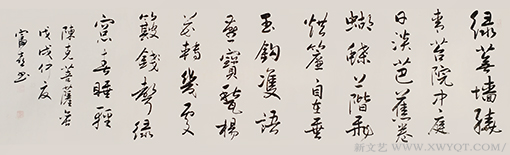 綠蕪墻繞
青苔院中庭
日淡芭蕉卷
蝴蝶上階飛
烘簾自在垂
玉鉤雙語
燕寶甃楊
花轉幾處
簸錢聲綠
窓春睡輕
陳克菩薩蠻
戊戌仲夏
新文艺 WWW.XWYQT.COM